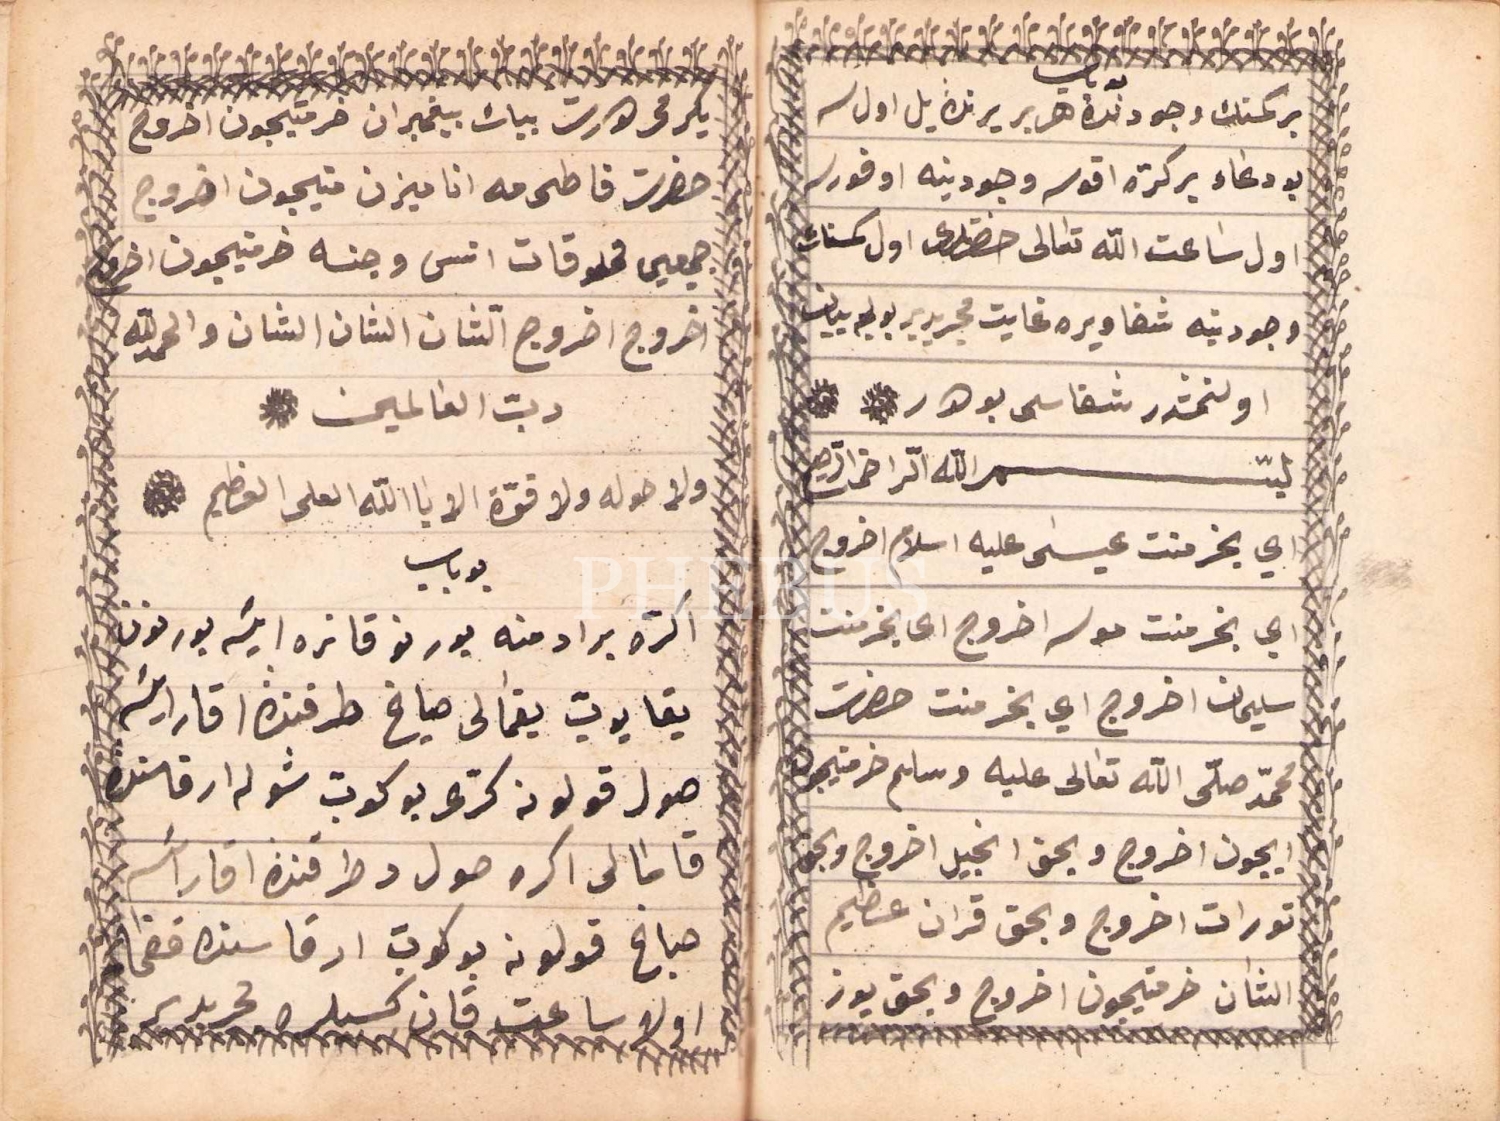 بو باب
بر كمسنك وجودندە هر بر يرندە يل اولسه
بو دعاء بر كرّه اقوسه وجودينه اوفورسه
اول ساعت اللّه تعالى حضرتلرى اول كمسنك
وجودينه شفا ويره غايت مجربدير بويله بيان
اولنمشدر شفاسى بودور
بسم اللّه الرّحمن الرّحيم
اي بخرمنت عيسى عليه اسلام اخروج
اي بخرمنت موسه اخروج اى بخرمنت
سليمان اخروج اي بخرمنت حضرت
محمّد صلّى اللّه تعالى عليه وسلم خرمتيجون
ايجون اخروج وبحق انجيل اخروج وبحق
تورات اخروج وبحق قران عظيم
الشان خرمتيجون اخروج وبحق يوز
يكرمى دورت بيك بيغمبران خرمتيجون اخروج
حضرت فاطمه انامیزن متيجون اخروج
جميعى مخلوقات انسى وجنسه خرمتيجون اخروج
اخروج اخروج الشان الشان الشان والحمد للّه
ربّ العالمين
ولا حوله ولا قوّة الا باا اللّه العلى العظيم
بو باب
اكرّه بر ادمنه بورنو قانره ايسه بورنونن
يقايوب يقمالى صاغ طرفندە اقار ايسه
صول قولونه كرّى بوكوب شوله ارقاسنده
قاطالى اكره صول طرفندە اقار ايسه
صاغ قولونه بوكوب ارقاسنده
اولا ساعت قان كسيله مجربدير
PHEBUS